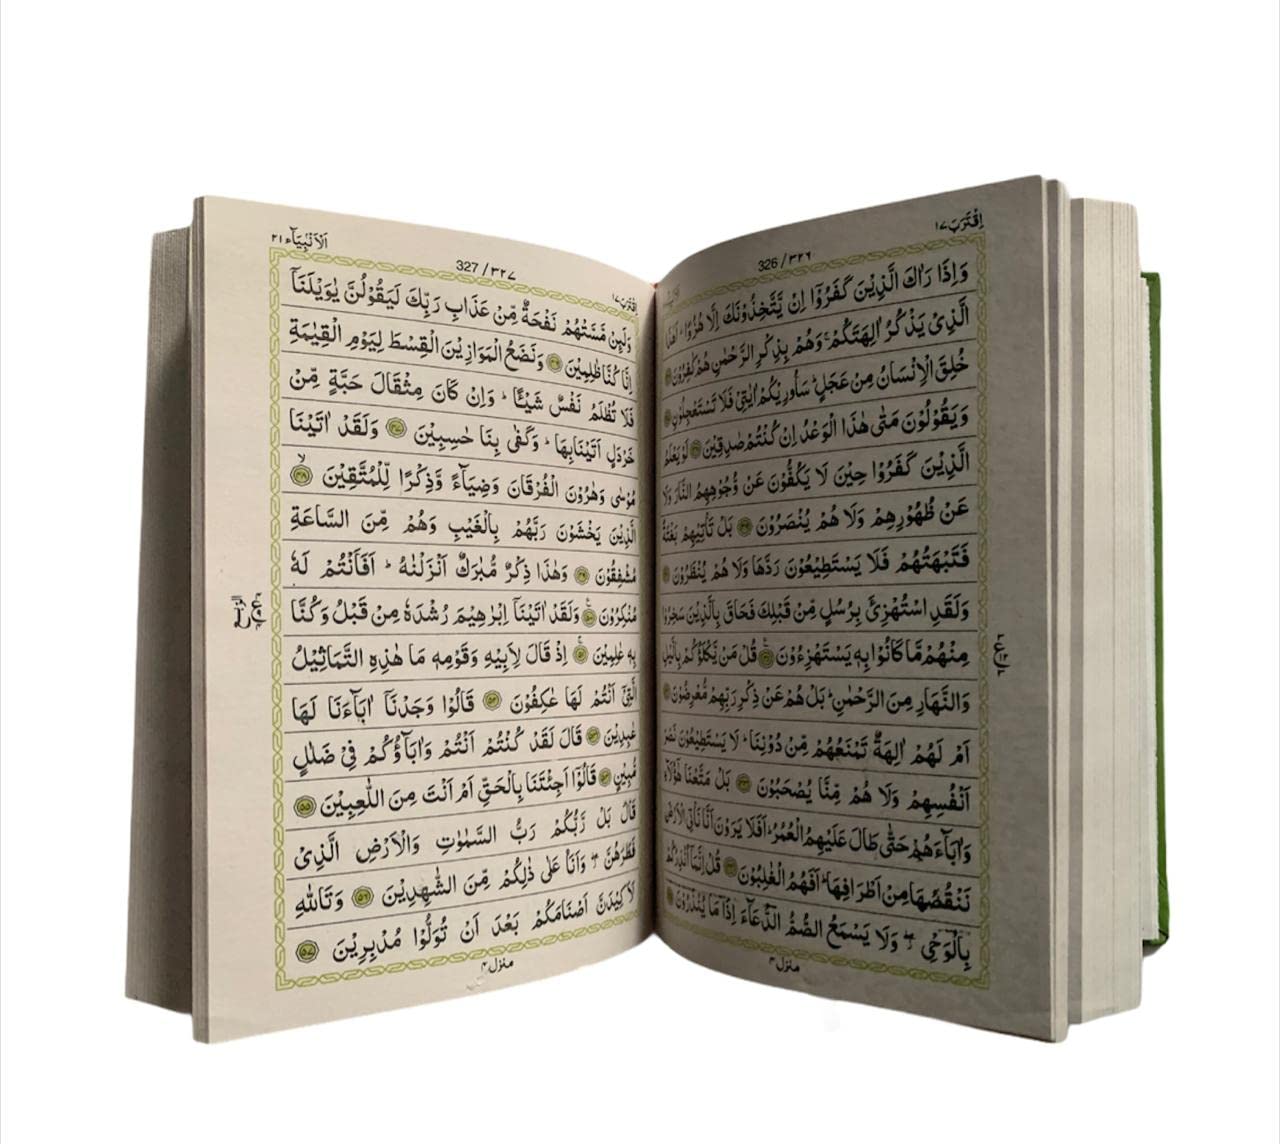 اِقْتَرَبَ ١٧
326 / ٣٢٦
وَاِذَا رَاٰكَ الَّذِيْنَ كَفَرُوْٓا اِنْ يَّتَّخِذُوْنَكَ اِلَّا هُزُوًا ؕ اَهٰذَا
الَّذِيْ يَذْكُرُ اٰلِهَتَكُمْ ۚ وَهُمْ بِذِكْرِ الرَّحْمٰنِ هُمْ كٰفِرُوْنَ
خُلِقَ الْاِنْسَانُ مِنْ عَجَلٍ ؕ سَاُورِيْكُمْ اٰيٰتِيْ فَلَا تَسْتَعْجِلُوْنِ
وَيَقُوْلُوْنَ مَتٰى هٰذَا الْوَعْدُ اِنْ كُنْتُمْ صٰدِقِيْنَ ٣٨ لَوْ يَعْلَمُ
الَّذِيْنَ كَفَرُوْا حِيْنَ لَا يَكُفُّوْنَ عَنْ وُّجُوْهِهِمُ النَّارَ وَلَا
عَنْ ظُهُوْرِهِمْ وَلَا هُمْ يُنْصَرُوْنَ ٣٩ بَلْ تَاْتِيْهِمْ بَغْتَةً
فَتَبْهَتُهُمْ فَلَا يَسْتَطِيْعُوْنَ رَدَّهَا وَلَا هُمْ يُنْظَرُوْنَ
وَلَقَدِ اسْتُهْزِئَ بِرُسُلٍ مِّنْ قَبْلِكَ فَحَاقَ بِالَّذِيْنَ سَخِرُوْا
مِنْهُمْ مَّا كَانُوْا بِهٖ يَسْتَهْزِءُوْنَ ٤١ قُلْ مَنْ يَّكْلَؤُكُمْ بِالَّيْلِ
وَالنَّهَارِ مِنَ الرَّحْمٰنِ ؕ بَلْ هُمْ عَنْ ذِكْرِ رَبِّهِمْ مُّعْرِضُوْنَ
اَمْ لَهُمْ اٰلِهَةٌ تَمْنَعُهُمْ مِّنْ دُوْنِنَا ؕ لَا يَسْتَطِيْعُوْنَ نَصْرَ
اَنْفُسِهِمْ وَلَا هُمْ مِّنَّا يُصْحَبُوْنَ ٤٣ بَلْ مَتَّعْنَا هٰٓؤُلَآءِ
وَاٰبَآءَهُمْ حَتّٰى طَالَ عَلَيْهِمُ الْعُمُرُ ؕ اَفَلَا يَرَوْنَ اَنَّا نَاْتِي الْاَرْضَ
نَنْقُصُهَا مِنْ اَطْرَافِهَا ؕ اَفَهُمُ الْغٰلِبُوْنَ ٤٤ قُلْ اِنَّمَآ اُنْذِرُكُمْ
بِالْوَحْيِ ۖ وَلَا يَسْمَعُ الصُّمُّ الدُّعَآءَ اِذَا مَا يُنْذَرُوْنَ
منزل ٤
اَلْاَنْۢبِيَآء ٢١
327 / ٣٢٧
اِقْتَرَبَ ١٧
وَلَىِٕنْ مَّسَّتْهُمْ نَفْحَةٌ مِّنْ عَذَابِ رَبِّكَ لَيَقُوْلُنَّ يٰوَيْلَنَآ
اِنَّا كُنَّا ظٰلِمِيْنَ ٤٦ وَنَضَعُ الْمَوَازِيْنَ الْقِسْطَ لِيَوْمِ الْقِيٰمَةِ
فَلَا تُظْلَمُ نَفْسٌ شَيْـًٔا ؕ وَاِنْ كَانَ مِثْقَالَ حَبَّةٍ مِّنْ
خَرْدَلٍ اَتَيْنَا بِهَا ؕ وَكَفٰى بِنَا حٰسِبِيْنَ ٤٧ وَلَقَدْ اٰتَيْنَا
مُوْسٰى وَهٰرُوْنَ الْفُرْقَانَ وَضِيَآءً وَّذِكْرًا لِّلْمُتَّقِيْنَ ۙ ٤٨
الَّذِيْنَ يَخْشَوْنَ رَبَّهُمْ بِالْغَيْبِ وَهُمْ مِّنَ السَّاعَةِ
مُشْفِقُوْنَ ٤٩ وَهٰذَا ذِكْرٌ مُّبٰرَكٌ اَنْزَلْنٰهُ ؕ اَفَاَنْتُمْ لَهٗ
مُنْكِرُوْنَ ٥٠ وَلَقَدْ اٰتَيْنَآ اِبْرٰهِيْمَ رُشْدَهٗ مِنْ قَبْلُ وَكُنَّا
بِهٖ عٰلِمِيْنَ ٥١ اِذْ قَالَ لِاَبِيْهِ وَقَوْمِهٖ مَا هٰذِهِ التَّمَاثِيْلُ
الَّتِيْٓ اَنْتُمْ لَهَا عٰكِفُوْنَ ٥٢ قَالُوْا وَجَدْنَآ اٰبَآءَنَا لَهَا
عٰبِدِيْنَ ٥٣ قَالَ لَقَدْ كُنْتُمْ اَنْتُمْ وَاٰبَآؤُكُمْ فِيْ ضَلٰلٍ
مُّبِيْنٍ ٥٤ قَالُوْٓا اَجِئْتَنَا بِالْحَقِّ اَمْ اَنْتَ مِنَ اللّٰعِبِيْنَ ٥٥
قَالَ بَلْ رَّبُّكُمْ رَبُّ السَّمٰوٰتِ وَالْاَرْضِ الَّذِيْ
فَطَرَهُنَّ ۖ وَاَنَا عَلٰى ذٰلِكُمْ مِّنَ الشّٰهِدِيْنَ ٥٦ وَتَاللّٰهِ
لَاَكِيْدَنَّ اَصْنَامَكُمْ بَعْدَ اَنْ تُوَلُّوْا مُدْبِرِيْنَ ٥٧
منزل ٤